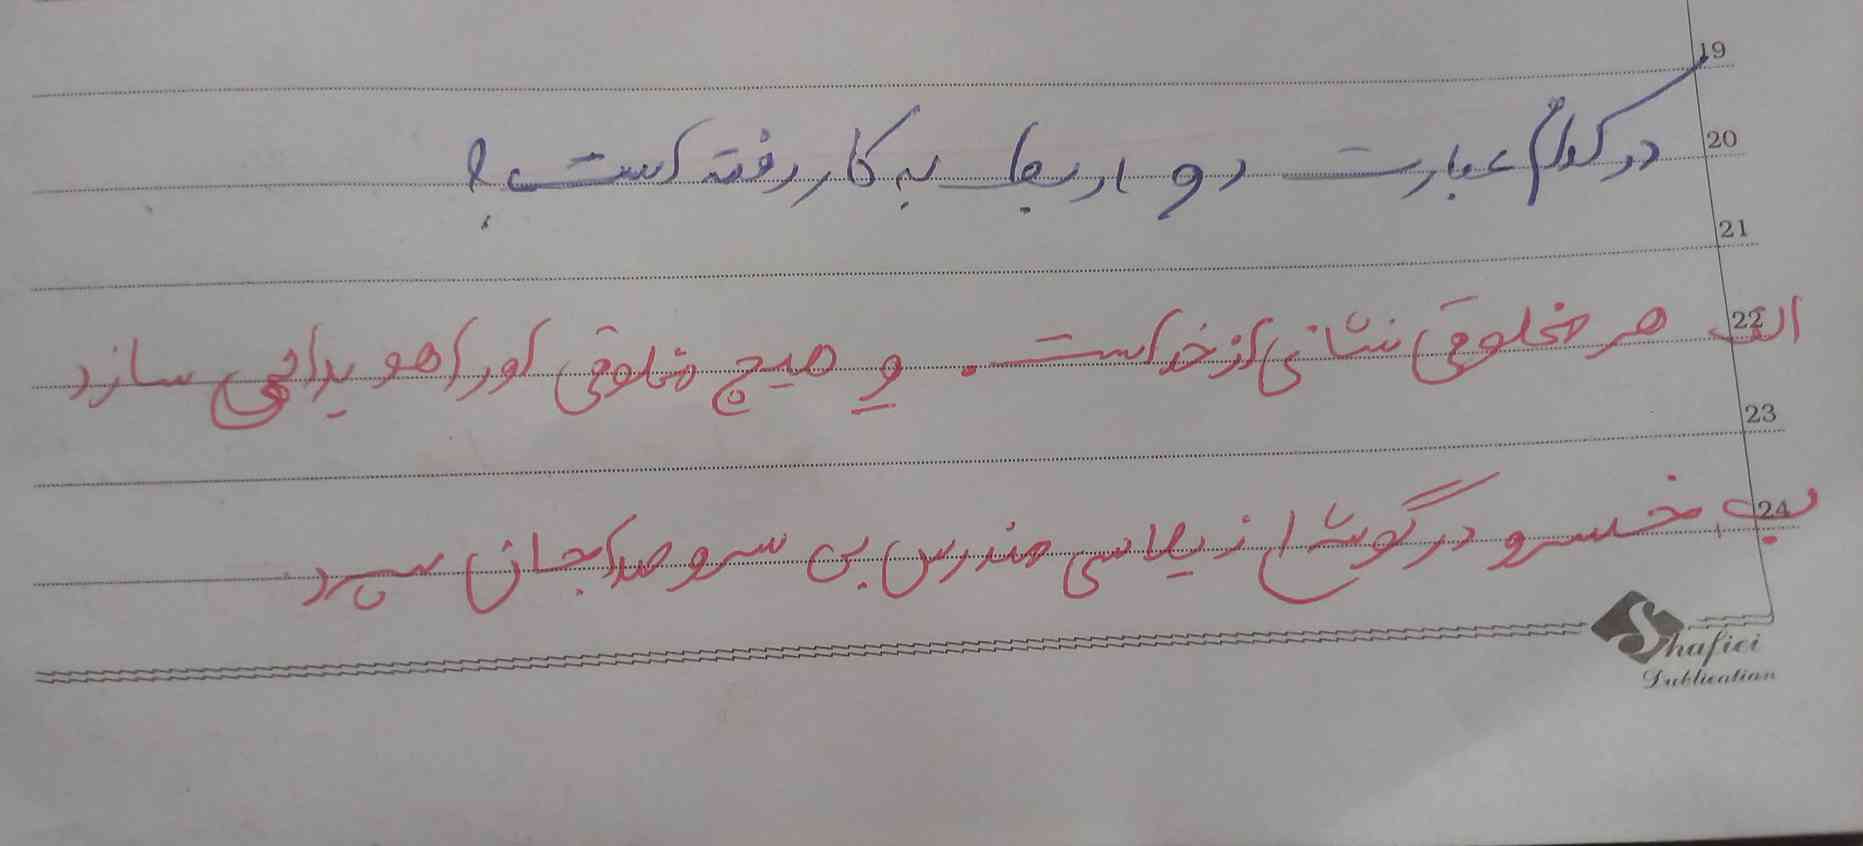 19
20 در کدام عبارت دو اربط به کار رفته است؟
21
22 الف هر مخلوقی نشانی از خداست . و هیچ مخلوقی او را هویدا نمی سازد
23
24 ب خسرو در گوشه ای زیر پلاسی مندرس بی سر و صدا جان سپرد
Shafiei
Publication